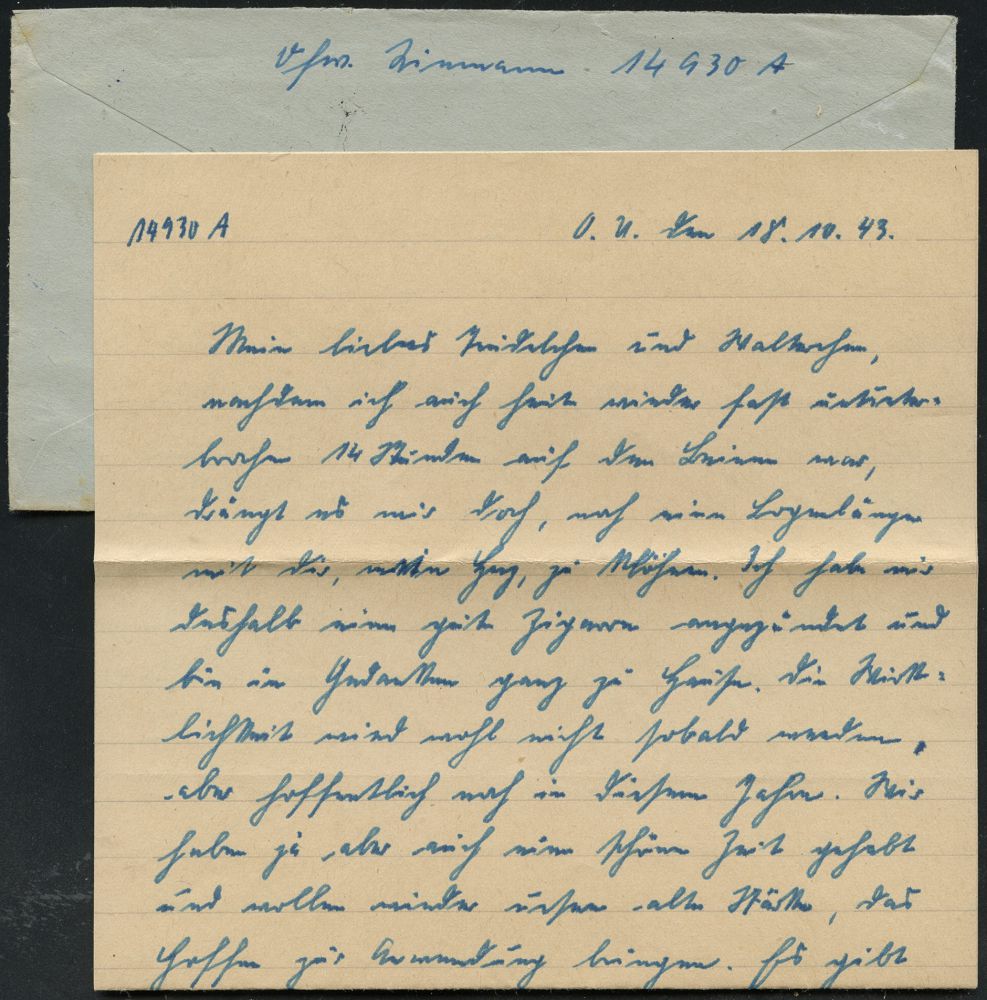 Ofw. Zinmann 14930 A
14930 A
O. U. den 18. 10. 43.
Mein liebes Trudelchen und Walterchen,
nachdem ich auch heute wieder fast ununter-
brochen 14 Stunden auf den Beinen war,
drängt es mir doch, noch eine Bogenlänge
mit Dir, mein Herz, zu klöhnen. Ich habe mir
deshalb eine gute Zigarre angezündet und
bin in Gedanken ganz zu Hause. Die Wirk-
lichkeit wird wohl nicht sobald werden,
aber hoffentlich noch in diesem Jahre. Wir
haben ja aber auch eine schöne Zeit gehabt
und wollen wieder unsere alte Stärke, das
Hoffen zur Anwendung bringen. Es gibt